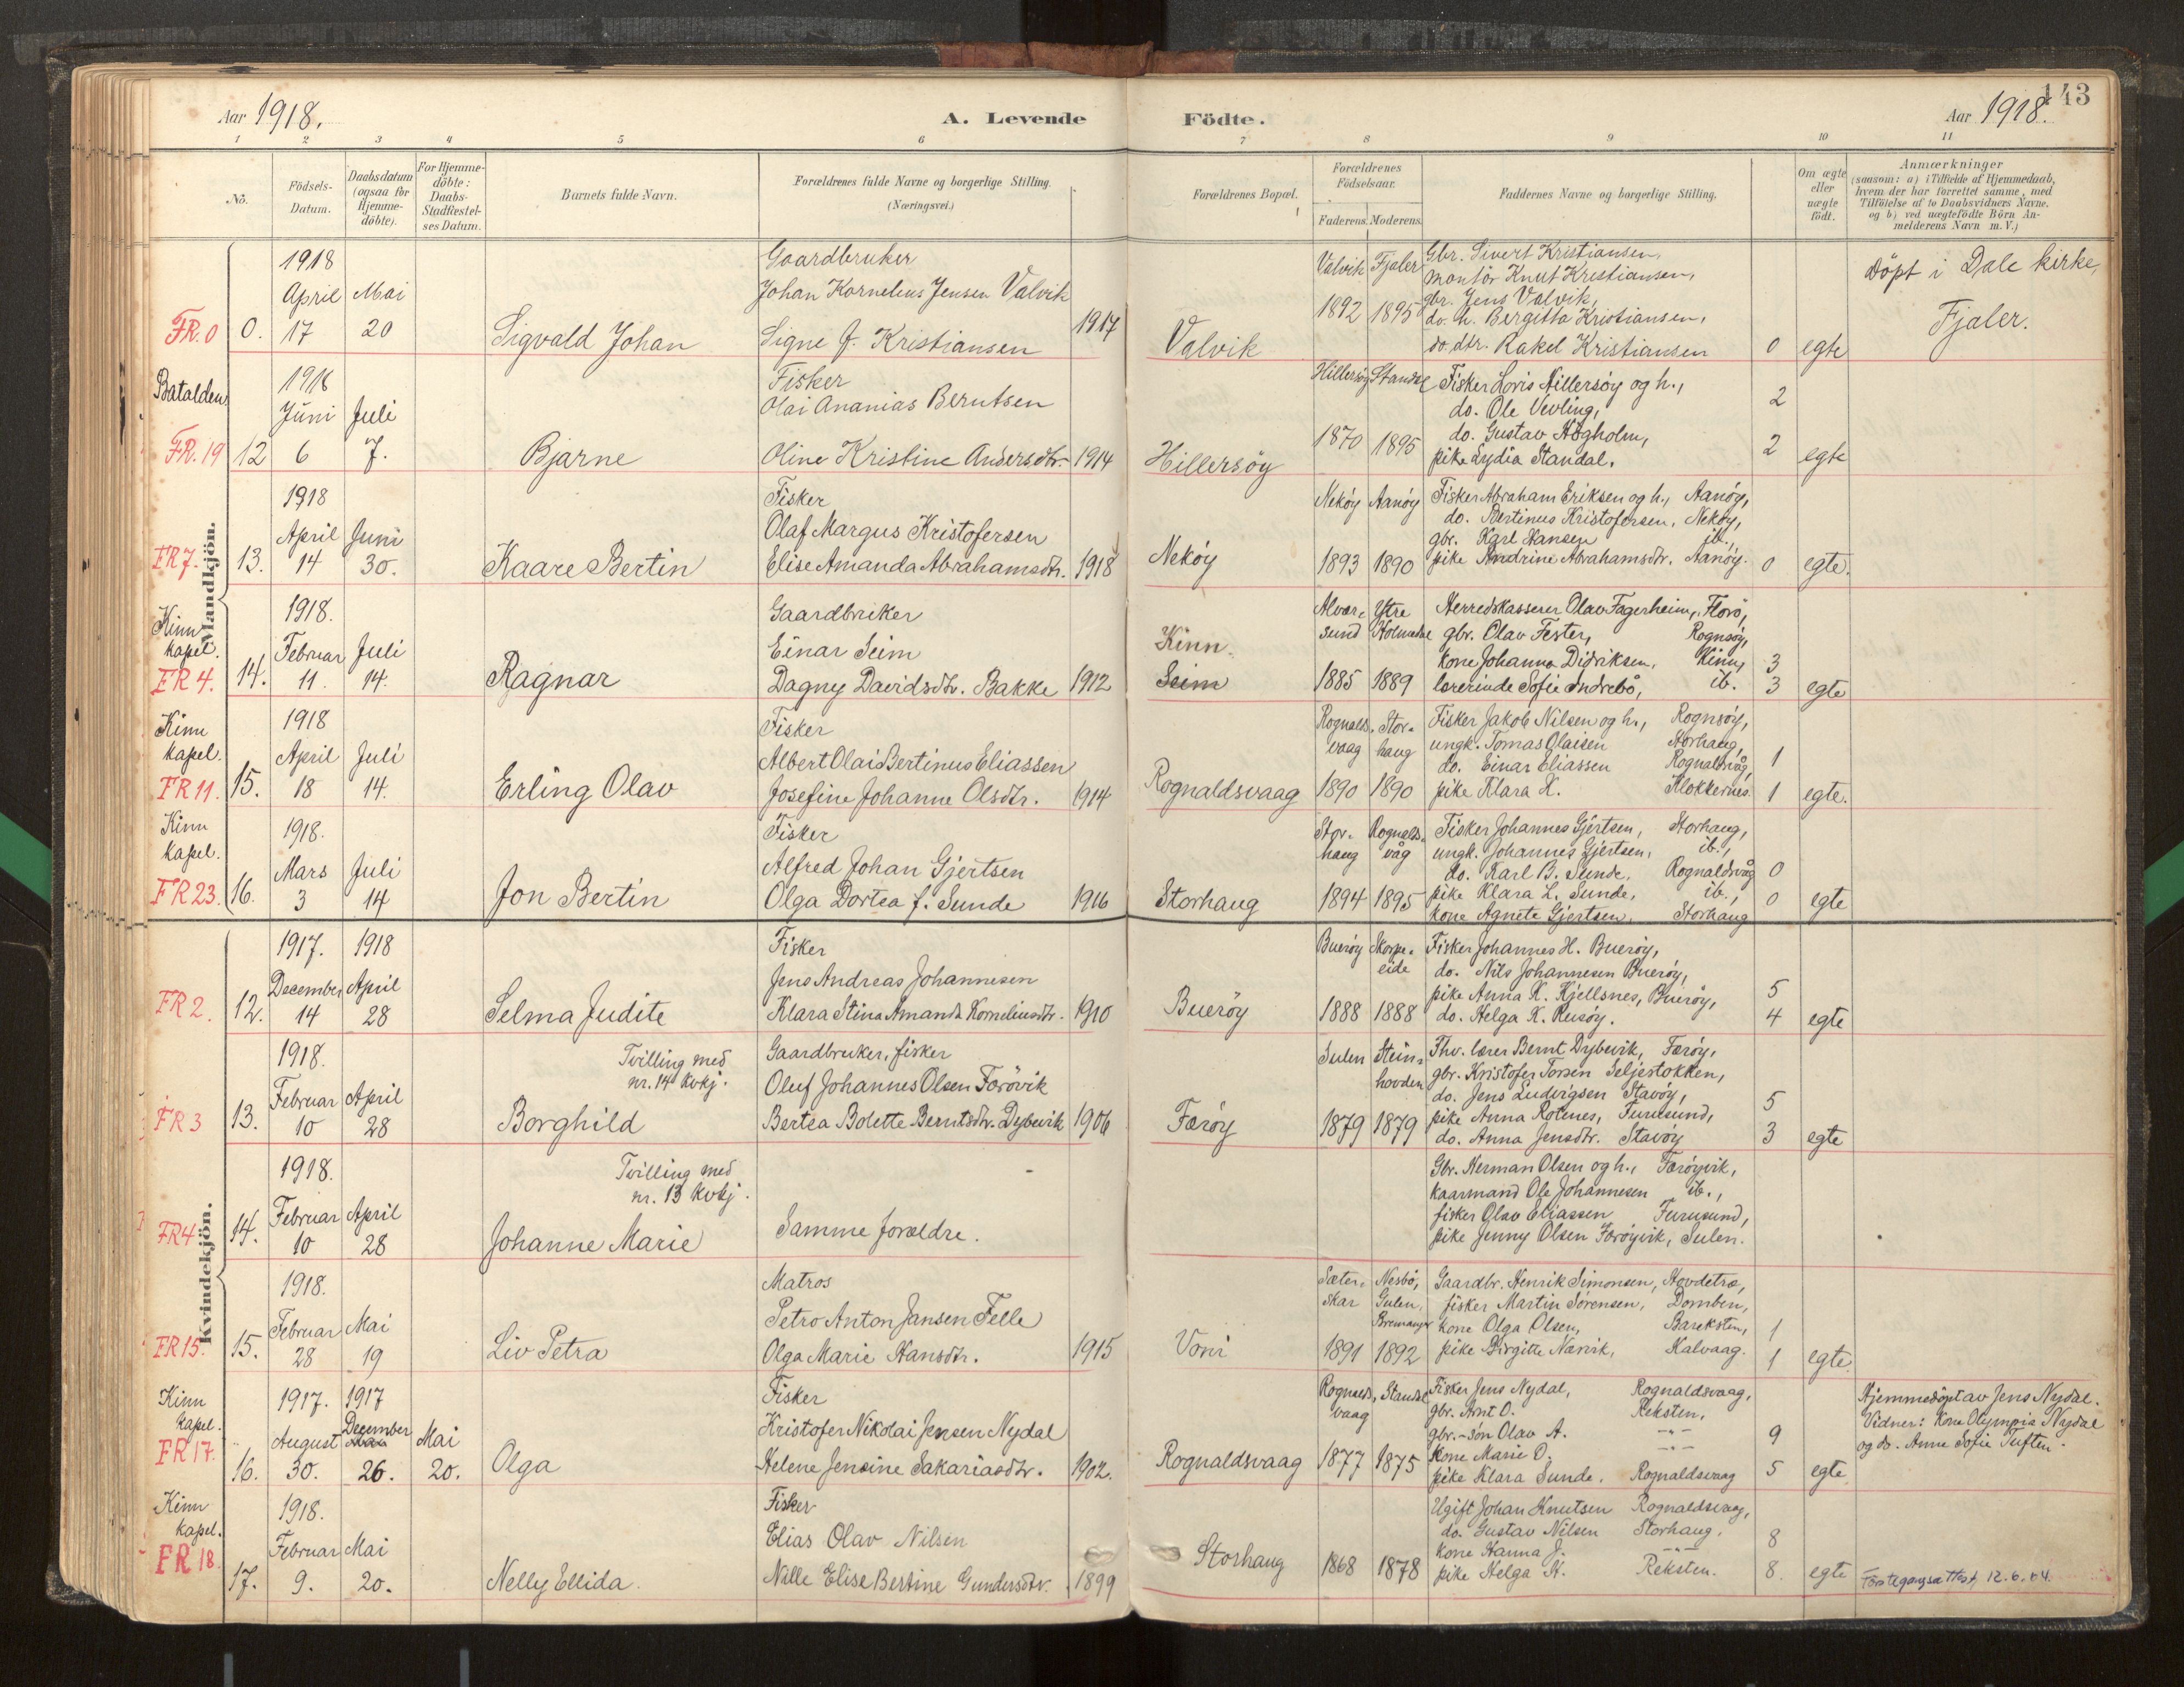 Aar 1918.
A. Levende Födte.
Aar 1918.
143
1 2 3 4 5 6 7 8 9 10 11
No.
Födsels-Datum.
Daabsdatum (ogsaa for Hjemme-döbte).
For Hjemme-döbte: Daabs-Stadfæstel-ses Datum.
Barnets fulde Navn.
Forældrenes fulde Navne og borgerlige Stilling. (Næringsvei.)
Forældrenes Bopæl.
Forældrenes Födselsaar.
Faderens. Moderens.
Faddernes Navne og borgerlige Stilling.
Om ægte eller uægte födt.
Anmærkninger
(saasom: a) i Tilfælde af Hjemmedaab,
hvem der har forrettet samme, med
Tilföielse af to Daabsvidners Navne.
og b) ved uægtefödte Börn An-
melderens Navn m. V.)
Mandkjön.
FR. 0
0.
1918
April
17
Mai
20
Sigvald Johan
Gaardbruker
Johan Kornelius Jensen Valvik
Signe J. Kristiansen
1917
Valvik
Valvik
1892
Fjaler
1895
Gbr. Sivert Kristiansen,
montör Knut Kristiansen,
gbr. Jens Valvik,
do. h. Bergitta Kristiansen,
do. dtr. Rakel Kristiansen
0
egte
Döpt i Dale kirke,
Fjaler.
Batalden
FR. 19
12
1918
Juni
6
Juli
7.
Bjarne
Fisker
Olai Ananias Berntsen
Oline Kristine Andersdtr.
1914
Hillersöy
Hillersöy
1870
Standal
1895
Fisker Lovis Hillersöy og h.,
do. Ole Vevling,
do. Gustav Hogholm,
pike Lydia Standal.
2
2
egte
FR 7.
13.
1918
April
14
Juni
30.
Kaare Bertin
Fisker
Olaf Margus Kristofersen
Elise Amanda Abrahamsdtr.
1918
Neköy
Neköy
1893
Aanöy
1890
Fisker Abraham Eriksen og h., Aanöy,
do. Bertinus Kristofersen, Neköy,
gbr. Karl Hansen ib.,
pike Andrine Abrahamsdtr. Aanöy.
0
egte.
Kinn
kapel.
FR 4.
14.
1918.
Februar
11.
Juli
14.
Ragnar
Gaardbruker
Einar Seim
Dagny Davidsdtr. Bakke
1912
Kinn
Seim
Alver-
sund
1885
Ytre
Holmedal
1889
Herredskasserer Olav Fagerheim, Florö,
gbr. Olav Fester, Rognsöy,
kone Johanna Didriksen, Kinn,
lærerinde Sofie Indrebö, ib.
3
3
egte
Kinn
kapel.
FR 11.
15.
1918
April
18
Juli
14.
Erling Olav
Fisker
Albert Olai Bertinus Eliassen
Josefine Johanne Olsdtr.
1914
Rognaldsvaag
Rognalds-
vaag
1890
Stor-
haug
1890
Fisker Jakob Nilsen og h., Rognsöy,
ungk. Tomas Olaisen Storhaug,
do. Einar Eliassen Rognaldsvåg,
pike Klara K. Klokkernes.
1
1
egte.
Kinn
kapel.
FR 23.
16.
1918.
Mars
3
Juli
14
Jon Bertin
Fisker
Alfred Johan Gjertsen
Olga Dortea f. Sunde
1916
Storhaug
Stor-
haug
1894
Rognalds-
våg
1895
Fisker Johannes Gjertsen, Storhaug,
ungk. Johannes Gjertsen, ib.,
do. Karl B. Sunde, Rognaldsvåg
pike Klara L. Sunde, ib.,
kone Agnete Gjertsen, Storhaug
0
0
egte
Kvindekjön.
FR 2.
12.
1917.
December
14
1918
April
28
Selma Judite
Fisker
Jens Andreas Johannesen
Klara Stina Amanda Korneliusdtr.
1910
Bueröy
Bueröy
1888
Skorpe-
eide
1888
Fisker Johannes H. Bueröy,
do. Nils Johannesen Bueröy,
pike Anna K. Kjellsnes, Bueröy,
do. Helga K. Reisöy.
5
4
egte
FR 3
13.
1918.
Februar
10
April
28
Tvilling med
nr. 14 kvkj.
Borghild
Gaardbruker, fisker
Oluf Johannes Olsen Færövik
Bertea Bolette Berntsdtr. Dybevik
1906
Færöy
Sulen
1879
Stein-
hovden
1879
Fhv. lærer Bernt Dybevik, Færöy,
gbr. Kristofer Torsen Seljestokken,
do. Jens Ludvigsen Stavöy,
pike Anna Rotenes, Furusund,
do. Anna Jensdtr. Stavöy
5
3
egte
FR 4
14.
1918.
Februar
10
April
28
Tvilling med
nr. 13 kvkj.
Johanne Marie
Samme forældre.
Gbr. Herman Olsen og h., Færöyvik,
kaarmand Ole Johannesen ib.,
fisker Olav Eliassen Furusund,
pike Jenny Olsen Færöyvik, Sulen.
FR 15.
15.
1918.
Februar
28
Mai
19
Liv Petra
Matros
Petro Anton Jansen Felle
Olga Marie Hansdtr.
1915
Vonr
Sæter-
skar
1891
Nesbö,
Gulen,
Bremanger
1892
Gaardbr. Henrik Simonsen, Hovdetræ,
fisker Martin Sörensen, Domben,
kone Olga Olsen, Bareksten,
pike Birgitte Nærvik, Kalvaag.
1
1
egte.
Kinn
kapel.
FR 17.
16.
1917.
August
30.
1917
December
26.
Mai
20.
Olga
Fisker
Kristofer Nikolai Jensen Nydal
Helene Jensine Sakariasdtr.
1902.
Rognaldsvaag
Rognalds-
vaag
1877
Standal
1875
Fisker Jens Nydal, Rognaldsvaag,
gbr. Arnt O. Reksten,
gbr.-sön Olav A. -"-
kone Marie O. -"-
pike Klara Sunde. Rognaldsvaag
9
5
egte
Hjemmedöpt av Jens Nydal.
Vidner: Kone Olympia Nydal
og do. Anne Sofie Tuften.
Kinn
kapel.
FR 18.
17.
1918.
Februar
9.
Mai
20.
Nelly Ellida.
Fisker
Elias Olav Nilsen
Nille Elise Bertine Gundersdtr.
1899
Storhaug
1868
1878
Ugift Johan Knutsen Rognaldsvaag,
do. Gustav Nilsen Storhaug,
kone Hanna J. -"-
pike Helga H. Reksten.
8
8.
egte
Förstegangsattest 12.6.04.